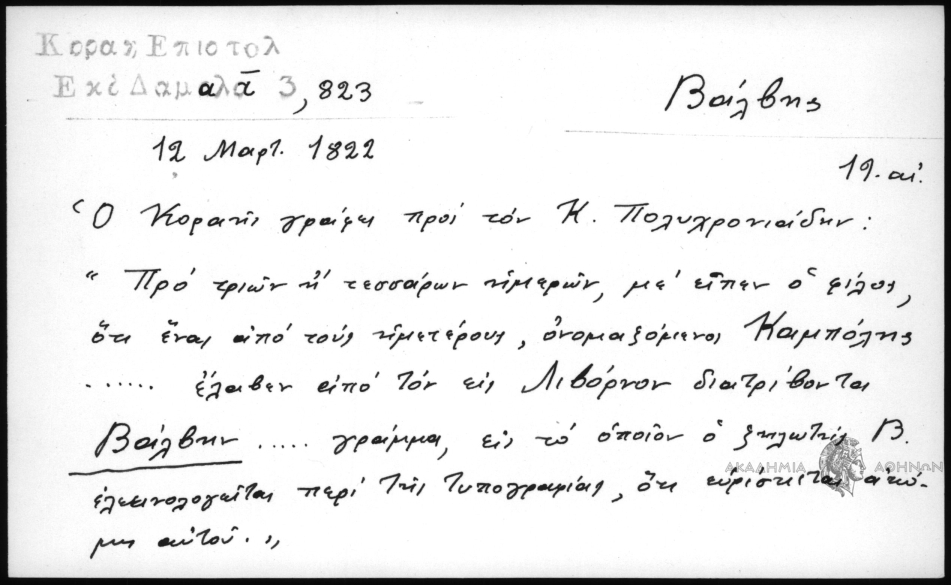 Κοραη Επιστολ
Εκδ Δαμαλα 3
αᾱ, 823
Βάλβης
12 Μαρτ. 1822
19. αἰ.
Ὁ Κοραῆς γράφει πρὸς τὸν Κ. Πολυχρονιάδην:
"Πρὸ τριῶν ἢ τεσσάρων ἡμερῶν, μὲ εἶπεν ὁ φίλος,
ὅτι ἕνας ἀπό τοὺς ἡμετέρους, ὀνομαζόμενος Καμπόλης
...... ἔλαβεν ἀπὸ τὸν εἰς Λιβόρνον διατρίβοντα
Βάλβην ..... γράμμα, εἰς τὸ ὁποῖον ὁ ζηλωτὴς Β.
ἐλεεινολογεῖται περὶ τῆς τυπογραφίας, ὅτι εὑρίσκεται ἀκό-
μη αὐτοῦ."
ΑΚΑΔΗΜΙΑ ΑΘΗΝΩΝ